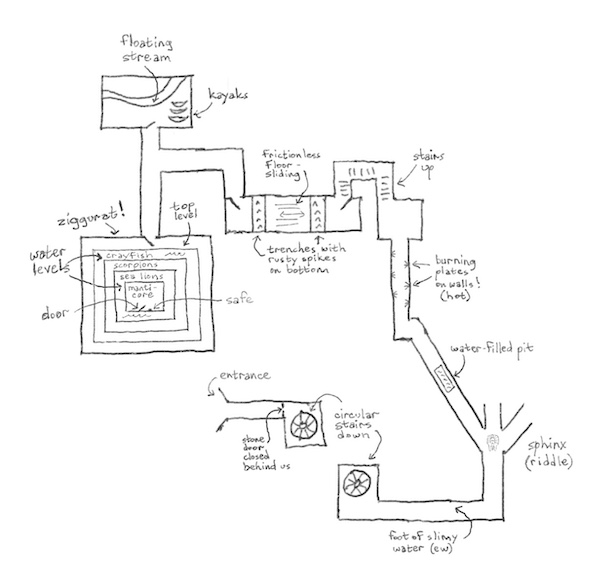 floating
stream
kayaks
frictionless
floor -
sliding
stairs
up
ziggurat!
top
level
water
levels
crayfish
scorpions
sea lions
manti-
core
door
safe
trenches with
rusty spikes
on bottom
burning
plates
on walls!
(hot)
water-filled pit
entrance
stone
door
closed
behind us
circular
stairs
down
sphinx
(riddle)
foot of slimy
water (ew)